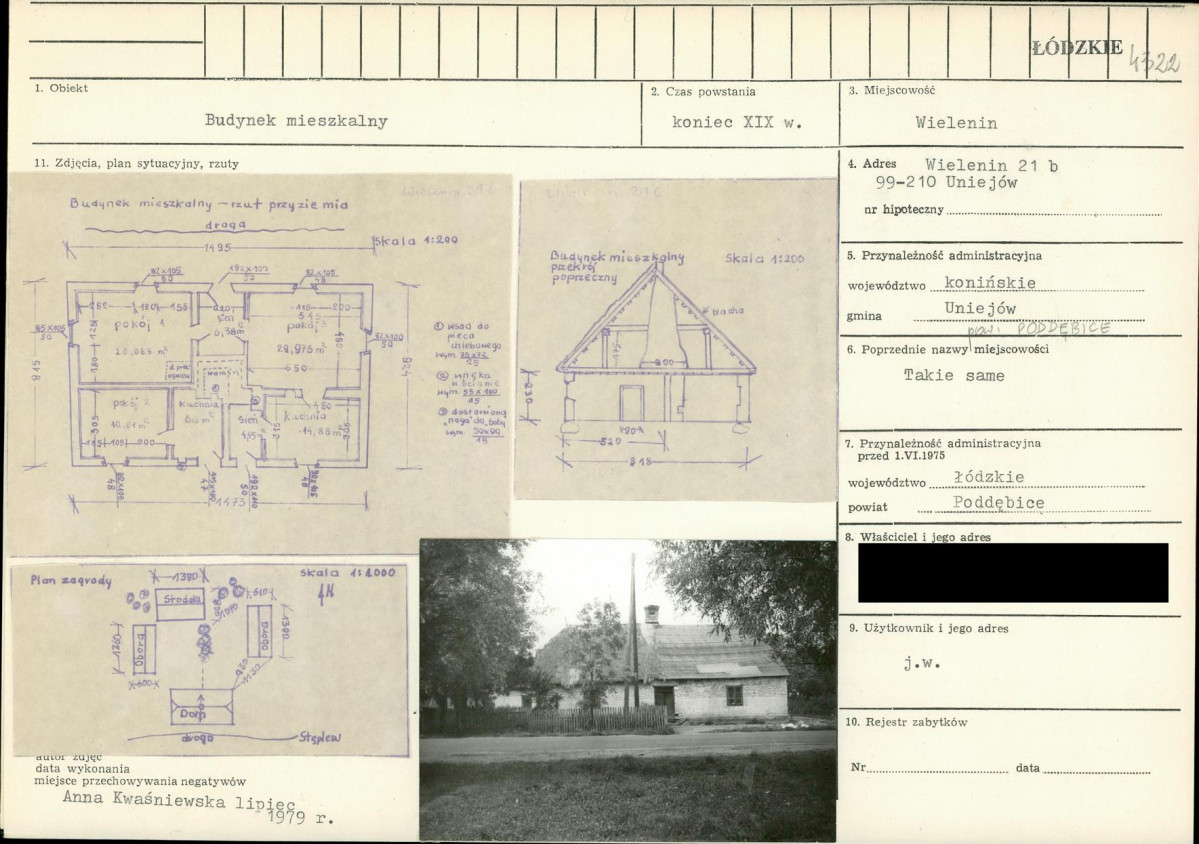 ŁÓDZKIE
4322
1. Obiekt
Budynek mieszkalny
2. Czas powstania
koniec XIX w.
3. Miejscowość
Wielenin
11. Zdjęcia, plan sytuacyjny, rzuty
4. Adres Wielenin 21 b
99-210 Uniejów
nr hipoteczny
5. Przynależność administracyjna
województwo konińskie
gmina Uniejów
pow. PODDĘBICE
6. Poprzednie nazwy miejscowości
Takie same
7. Przynależność administracyjna
przed 1.VI.1975
województwo łódzkie
powiat Poddębice
8. Właściciel i jego adres
9. Użytkownik i jego adres
j.w.
10. Rejestr zabytków
Nr data
Budynek mieszkalny – rzut przyziemia
droga
Skala 1:200
1495
82×105
50
192×107
50
82×105
pokój 1
sień
pokój 3
20,065 m²
29,975 m²
815
924
650
pokój 2
kuchnia
sień
kuchnia
14,88 m²
480
305
1473
① wsad do
pieca
chlebowego
wym. 75×72
② wnęka
w ścianie
wym. 55×100
15
③ dostawiona
"noga" do
wym.
Budynek mieszkalny
przekrój
poprzeczny
Skala 1:200
blacha
175
200
230
520
818
Plan zagrody
skala 1:1000
N
1380
Stodoła
Obora
600
1300
Dom
droga
Stęplew
autor zdjęć
data wykonania
miejsce przechowywania negatywów
Anna Kwaśniewska lipiec
1979 r.